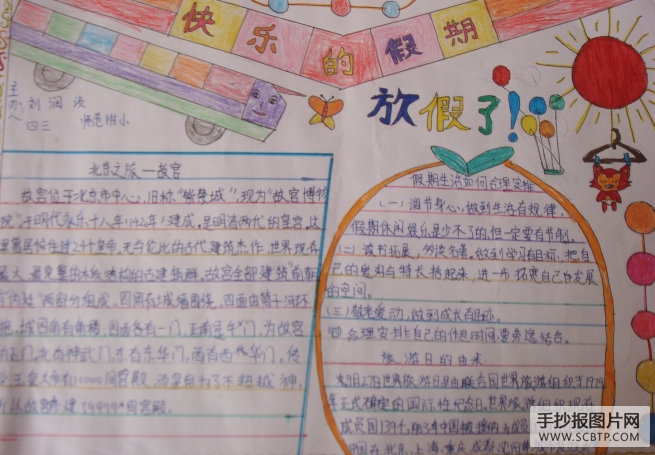 快乐的假期
主办人
刘润
四三 师范附小
放假了!
北京之旅—故宫
故宫位于北京市中心,旧称"紫禁城",现为"故宫博物
院"于明代永乐十八年(1420年)建成,是明清两代的皇宫。
24个皇帝。无与伦比的古代建筑杰作,世界现存
最大、最完整的木质结构的古建筑群。故宫全部建筑
两部分组成,四周有城墙围绕,四面由筒子河环
抱,城四角有角楼,四面各有一门,正南是午门,为故宫
正门,北有神武门,东有东华门,西有西华门,传
有10000间宫殿,而皇帝为了不超越神,
故宫
假期生活如何合理安排
(一)调节身心,做到生活有规律,
假期休闲娱乐是少不了的,但一定要有节制。
(二)读书拓展,多读名著。做到学习有目标,把自
己的与特长结起来,进一步拓宽自己发展
的空间。
(三)做到成长有
四 合理安排自己的作息时间,要劳逸结合。
旅游日的由来
9月27日世界旅游日是由联合国世界旅游组织于1979
年正式确定的国际性纪念日。世界旅游组织现有
成员国139个,1983年中国被接纳为成员
中国在北京,上海,重庆,成都
手抄报图片网
WWW.SCBTP.COM